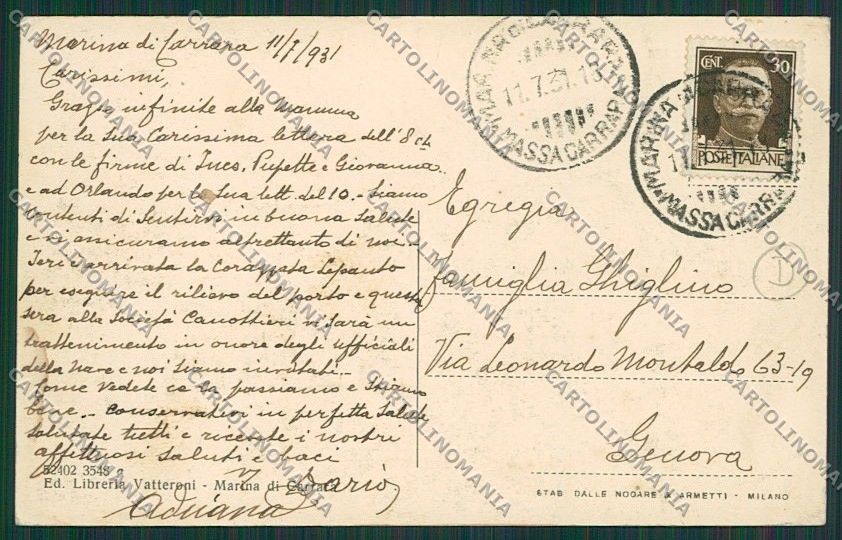 Marina di Carrara 11/7/931
Carissimi,
Grazie infinite alla Mamma
per la Sua Carissima lettera dell'8 ch.
con le firme di Ines, Pupette e Giovanna
e ad Orlando per la Sua lett. del 10. - Siamo
contenti di Sentirvi in buona Salute
e vi assicuriamo altrettanto di noi.
Ieri è arrivata la Corazzata Lepanto
per eseguire il rilievo del porto e questa
sera alla Società Canottieri vi sarà un
trattenimento in onore degli ufficiali
della Nave e noi Siamo invitati..
Come vedete ce la passiamo e Stiamo
bene.. Conservatevi in perfetta Salute
Salutate tutti e i nostri
affettuosi Saluti e baci
Dario
Adriana
52402 3548
Ed. Libreria Vatteroni - Marina di Carrara
MARINA DI CARRARA
11.7.31.
MASSA CARRARA
CENT. 30
POSTE ITALIANE
MARINA DI CARRARA
MASSA CARRARA
Egregia
Famiglia Ghiglino
D
Via Leonardo Montaldo 63-19
Genova
STAB DALLE NOGARE & ARMETTI - MILANO
CARTOLINOMANIA